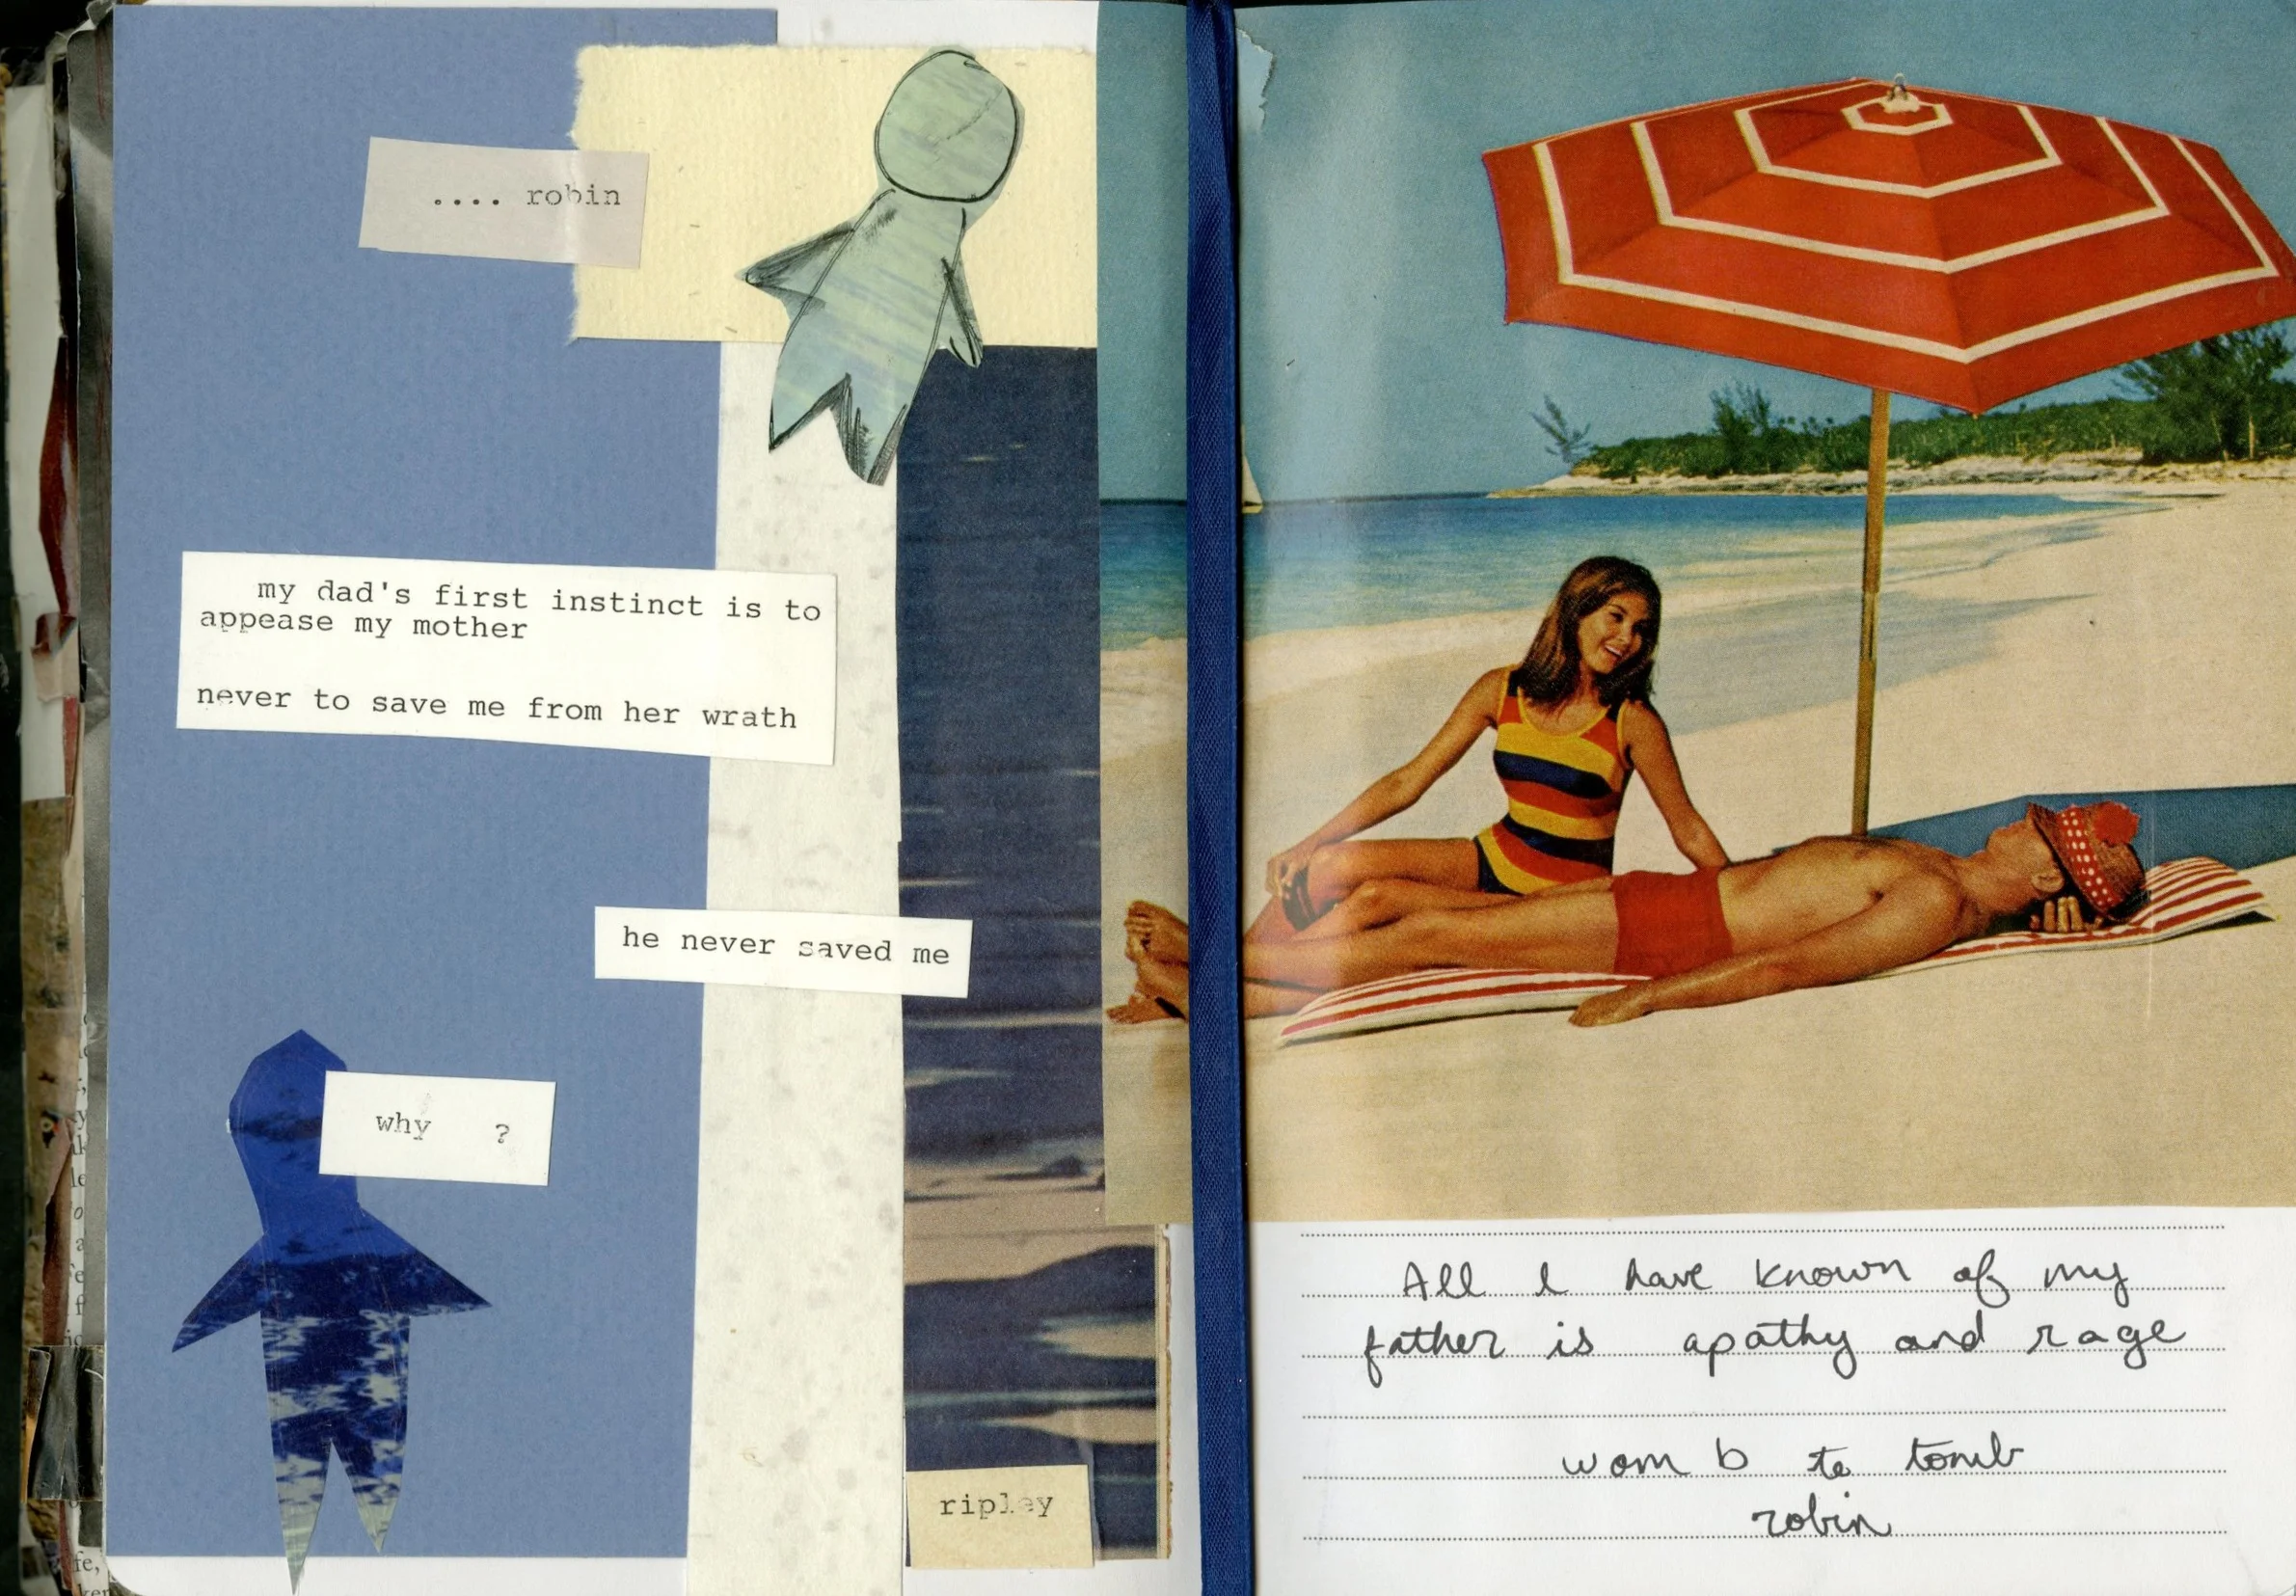 .... robin
my dad's first instinct is to
appease my mother
never to save me from her wrath
he never saved me
why ?
ripley
All I have known of my
father is apathy and rage
womb to tomb
robin